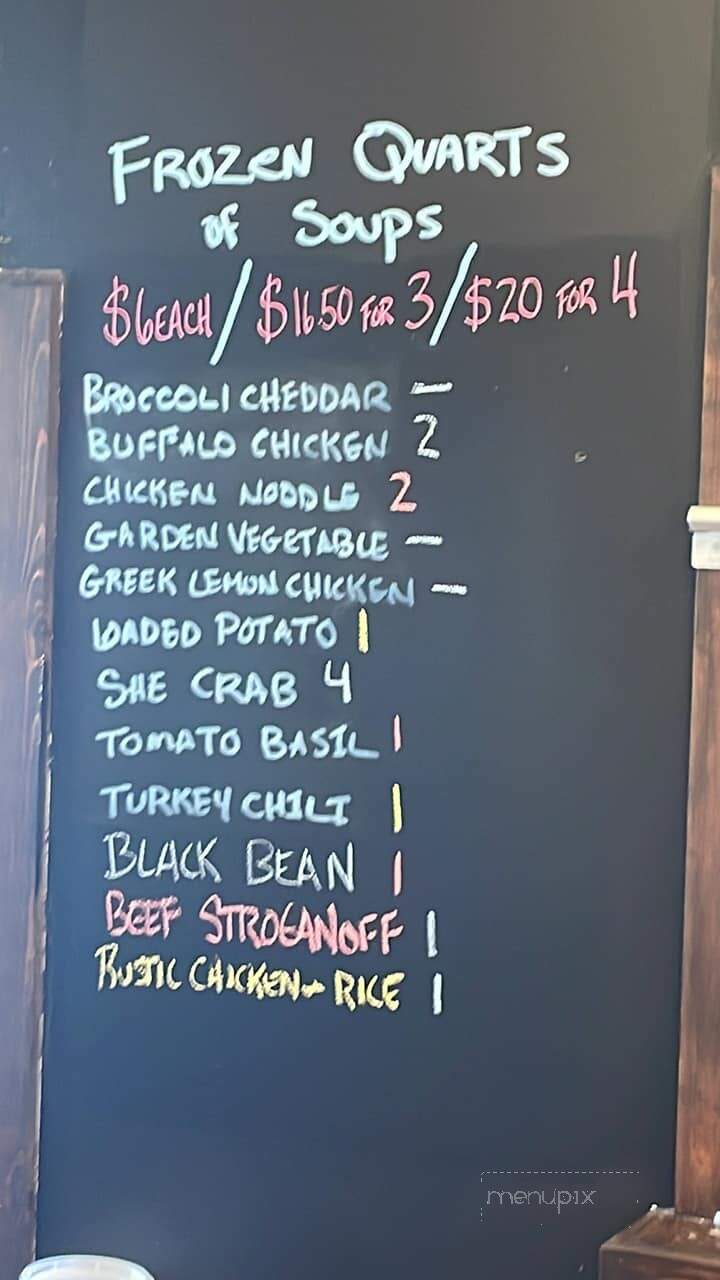 FROZEN QUARTS
of Soups
$6 EACH / $16.50 FOR 3 / $20 FOR 4
BROCCOLI CHEDDAR —
BUFFALO CHICKEN 2
CHICKEN NOODLE 2
GARDEN VEGETABLE —
GREEK LEMON CHICKEN —
LOADED POTATO 1
SHE CRAB 4
TOMATO BASIL 1
TURKEY CHILI 1
BLACK BEAN 1
BEEF STROGANOFF 1
RUSTIC CHICKEN + RICE 1
menupix